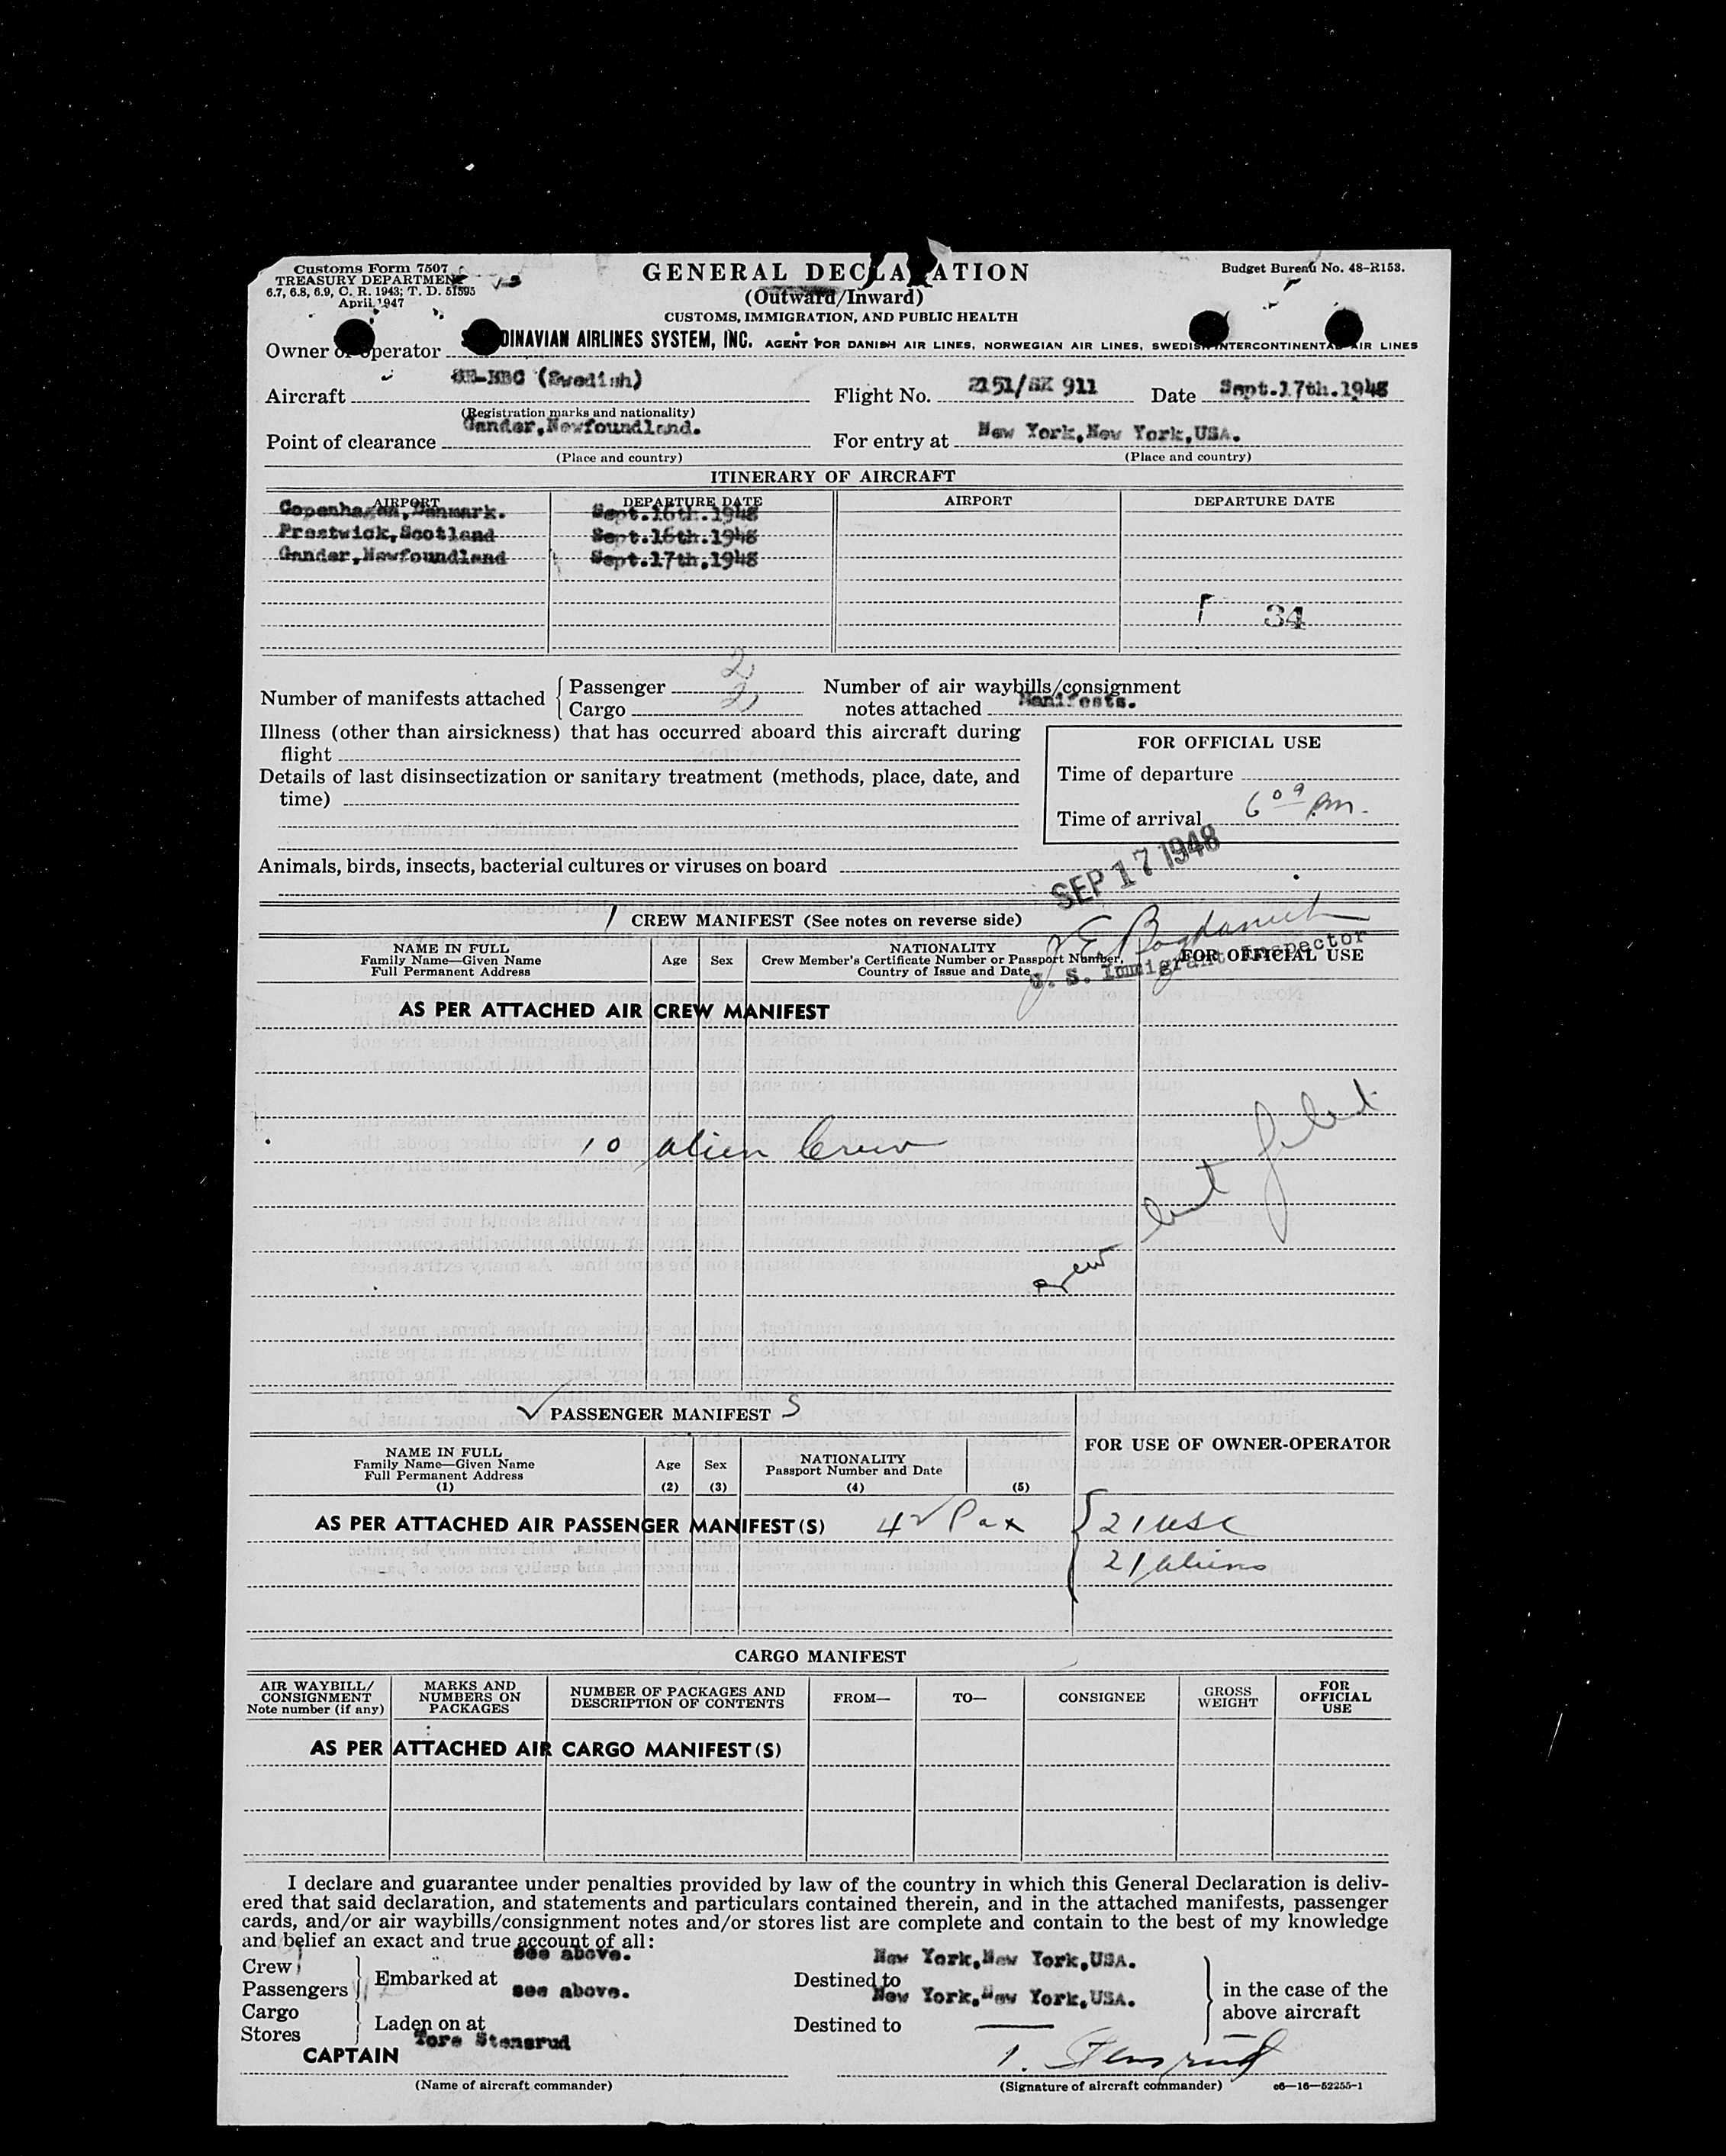 Customs Form 7507
TREASURY DEPARTMENT
6.7, 6.8, 6.9, C. R. 1943; T. D. 51595
April 1947
GENERAL DECLARATION
(Outward/Inward)
CUSTOMS, IMMIGRATION, AND PUBLIC HEALTH
Budget Bureau No. 48-R153.
Owner or operator SCANDINAVIAN AIRLINES SYSTEM, INC. AGENT FOR DANISH AIR LINES, NORWEGIAN AIR LINES, SWEDISH INTERCONTINENTAL AIR LINES
Aircraft SE-BBC (Swedish) Flight No. 2151/SK 911 Date Sept.17th.1948
(Registration marks and nationality)
Point of clearance Gander,Newfoundland. For entry at New York,New York,USA.
(Place and country) (Place and country)
ITINERARY OF AIRCRAFT
AIRPORT DEPARTURE DATE AIRPORT DEPARTURE DATE
Copenhagen,Denmark. Sept.16th.1948
Prestwick,Scotland Sept.16th.1948
Gander,Newfoundland Sept.17th.1948
34
Number of manifests attached { Passenger 2 Number of air waybills/consignment
Cargo 2 notes attached Manifests.
Illness (other than airsickness) that has occurred aboard this aircraft during
flight
Details of last disinsectization or sanitary treatment (methods, place, date, and
time)
FOR OFFICIAL USE
Time of departure
Time of arrival 6 09 pm.
SEP 17 1948
Animals, birds, insects, bacterial cultures or viruses on board
1 CREW MANIFEST (See notes on reverse side)
J E Bogdanich
U. S. Immigrant Inspector
NAME IN FULL
Family Name—Given Name
Full Permanent Address
Age Sex
NATIONALITY
Crew Member's Certificate Number or Passport Number,
Country of Issue and Date
FOR OFFICIAL USE
AS PER ATTACHED AIR CREW MANIFEST
10 alien Crew
crew list filed
PASSENGER MANIFEST S
NAME IN FULL
Family Name—Given Name
Full Permanent Address
(1)
Age
(2)
Sex
(3)
NATIONALITY
Passport Number and Date
(4) (5)
FOR USE OF OWNER-OPERATOR
AS PER ATTACHED AIR PASSENGER MANIFEST(S) 42 Pax { 21 USC
21 Aliens
CARGO MANIFEST
AIR WAYBILL/
CONSIGNMENT
Note number (if any)
MARKS AND
NUMBERS ON
PACKAGES
NUMBER OF PACKAGES AND
DESCRIPTION OF CONTENTS
FROM— TO— CONSIGNEE
GROSS
WEIGHT
FOR
OFFICIAL
USE
AS PER ATTACHED AIR CARGO MANIFEST(S)
I declare and guarantee under penalties provided by law of the country in which this General Declaration is deliv-
ered that said declaration, and statements and particulars contained therein, and in the attached manifests, passenger
cards, and/or air waybills/consignment notes and/or stores list are complete and contain to the best of my knowledge
and belief an exact and true account of all:
Crew
Passengers
Cargo
Stores
see above.
Embarked at
see above.
Laden on at
New York,New York,USA.
Destined to
New York,New York,USA.
Destined to
in the case of the
above aircraft
CAPTAIN Tore Stensrud
T. Stensrud
(Name of aircraft commander) (Signature of aircraft commander) c6—16—52255-1